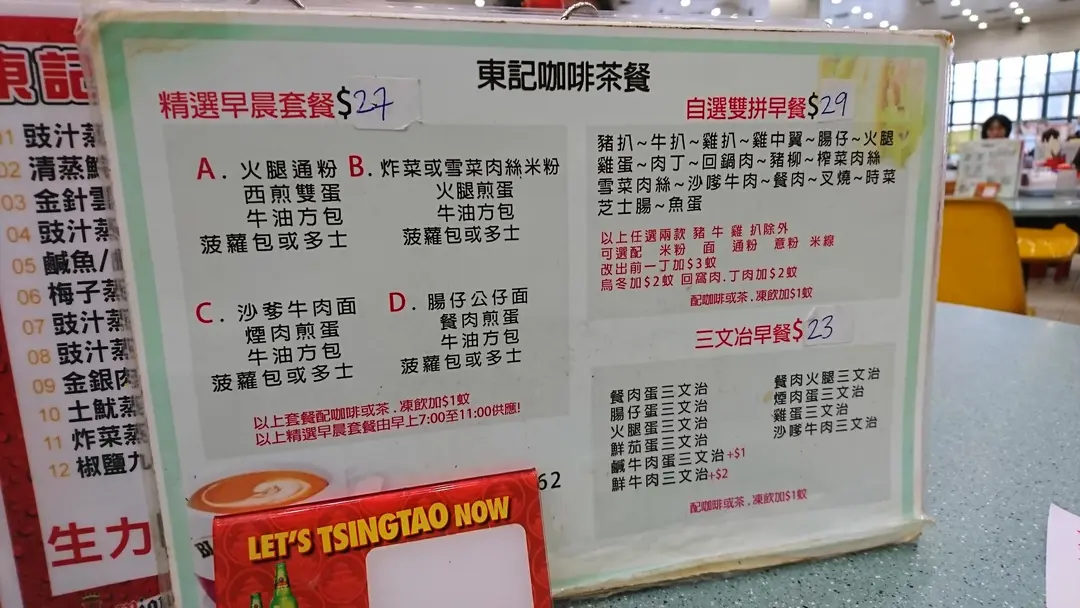 東記
01 豉汁蒸
02 清蒸
03 金針
04 豉汁蒸
05 鹹魚/
06 梅子蒸
07 豉汁蒸
08 豉汁蒸
09 金銀肉
10 土魷蒸
11 炸菜蒸
12 椒鹽九
生力
東記咖啡茶餐
精選早晨套餐$27
A. 火腿通粉
西煎雙蛋
牛油方包
菠蘿包或多士
B. 炸菜或雪菜肉絲米粉
火腿煎蛋
牛油方包
菠蘿包或多士
C. 沙爹牛肉面
煙肉煎蛋
牛油方包
菠蘿包或多士
D. 腸仔公仔面
餐肉煎蛋
牛油方包
菠蘿包或多士
以上套餐配咖啡或茶﹐凍飲加$1蚊
以上精選早晨套餐由早上7:00至11:00供應!
自選雙拼早餐$29
豬扒~牛扒~雞扒~雞中翼~腸仔~火腿
雞蛋~肉丁~回鍋肉~豬柳~榨菜肉絲
雪菜肉絲~沙嗲牛肉~餐肉~叉燒~時菜
芝士腸~魚蛋
以上任選兩款 豬 牛 雞 扒除外
可選配 米粉 面 通粉 意粉 米線
改出前一丁加$3蚊
烏冬加$2蚊 回窩肉.丁肉加$2蚊
配咖啡或茶﹐凍飲加$1蚊
三文冶早餐$23
餐肉蛋三文治
腸仔蛋三文治
火腿蛋三文治
鮮茄蛋三文治
鹹牛肉蛋三文治+$1
鮮牛肉三文治+$2
餐肉火腿三文治
煙肉蛋三文治
雞蛋三文治
沙嗲牛肉三文治
配咖啡或茶﹐凍飲加$1蚊
62
LET'S TSINGTAO NOW